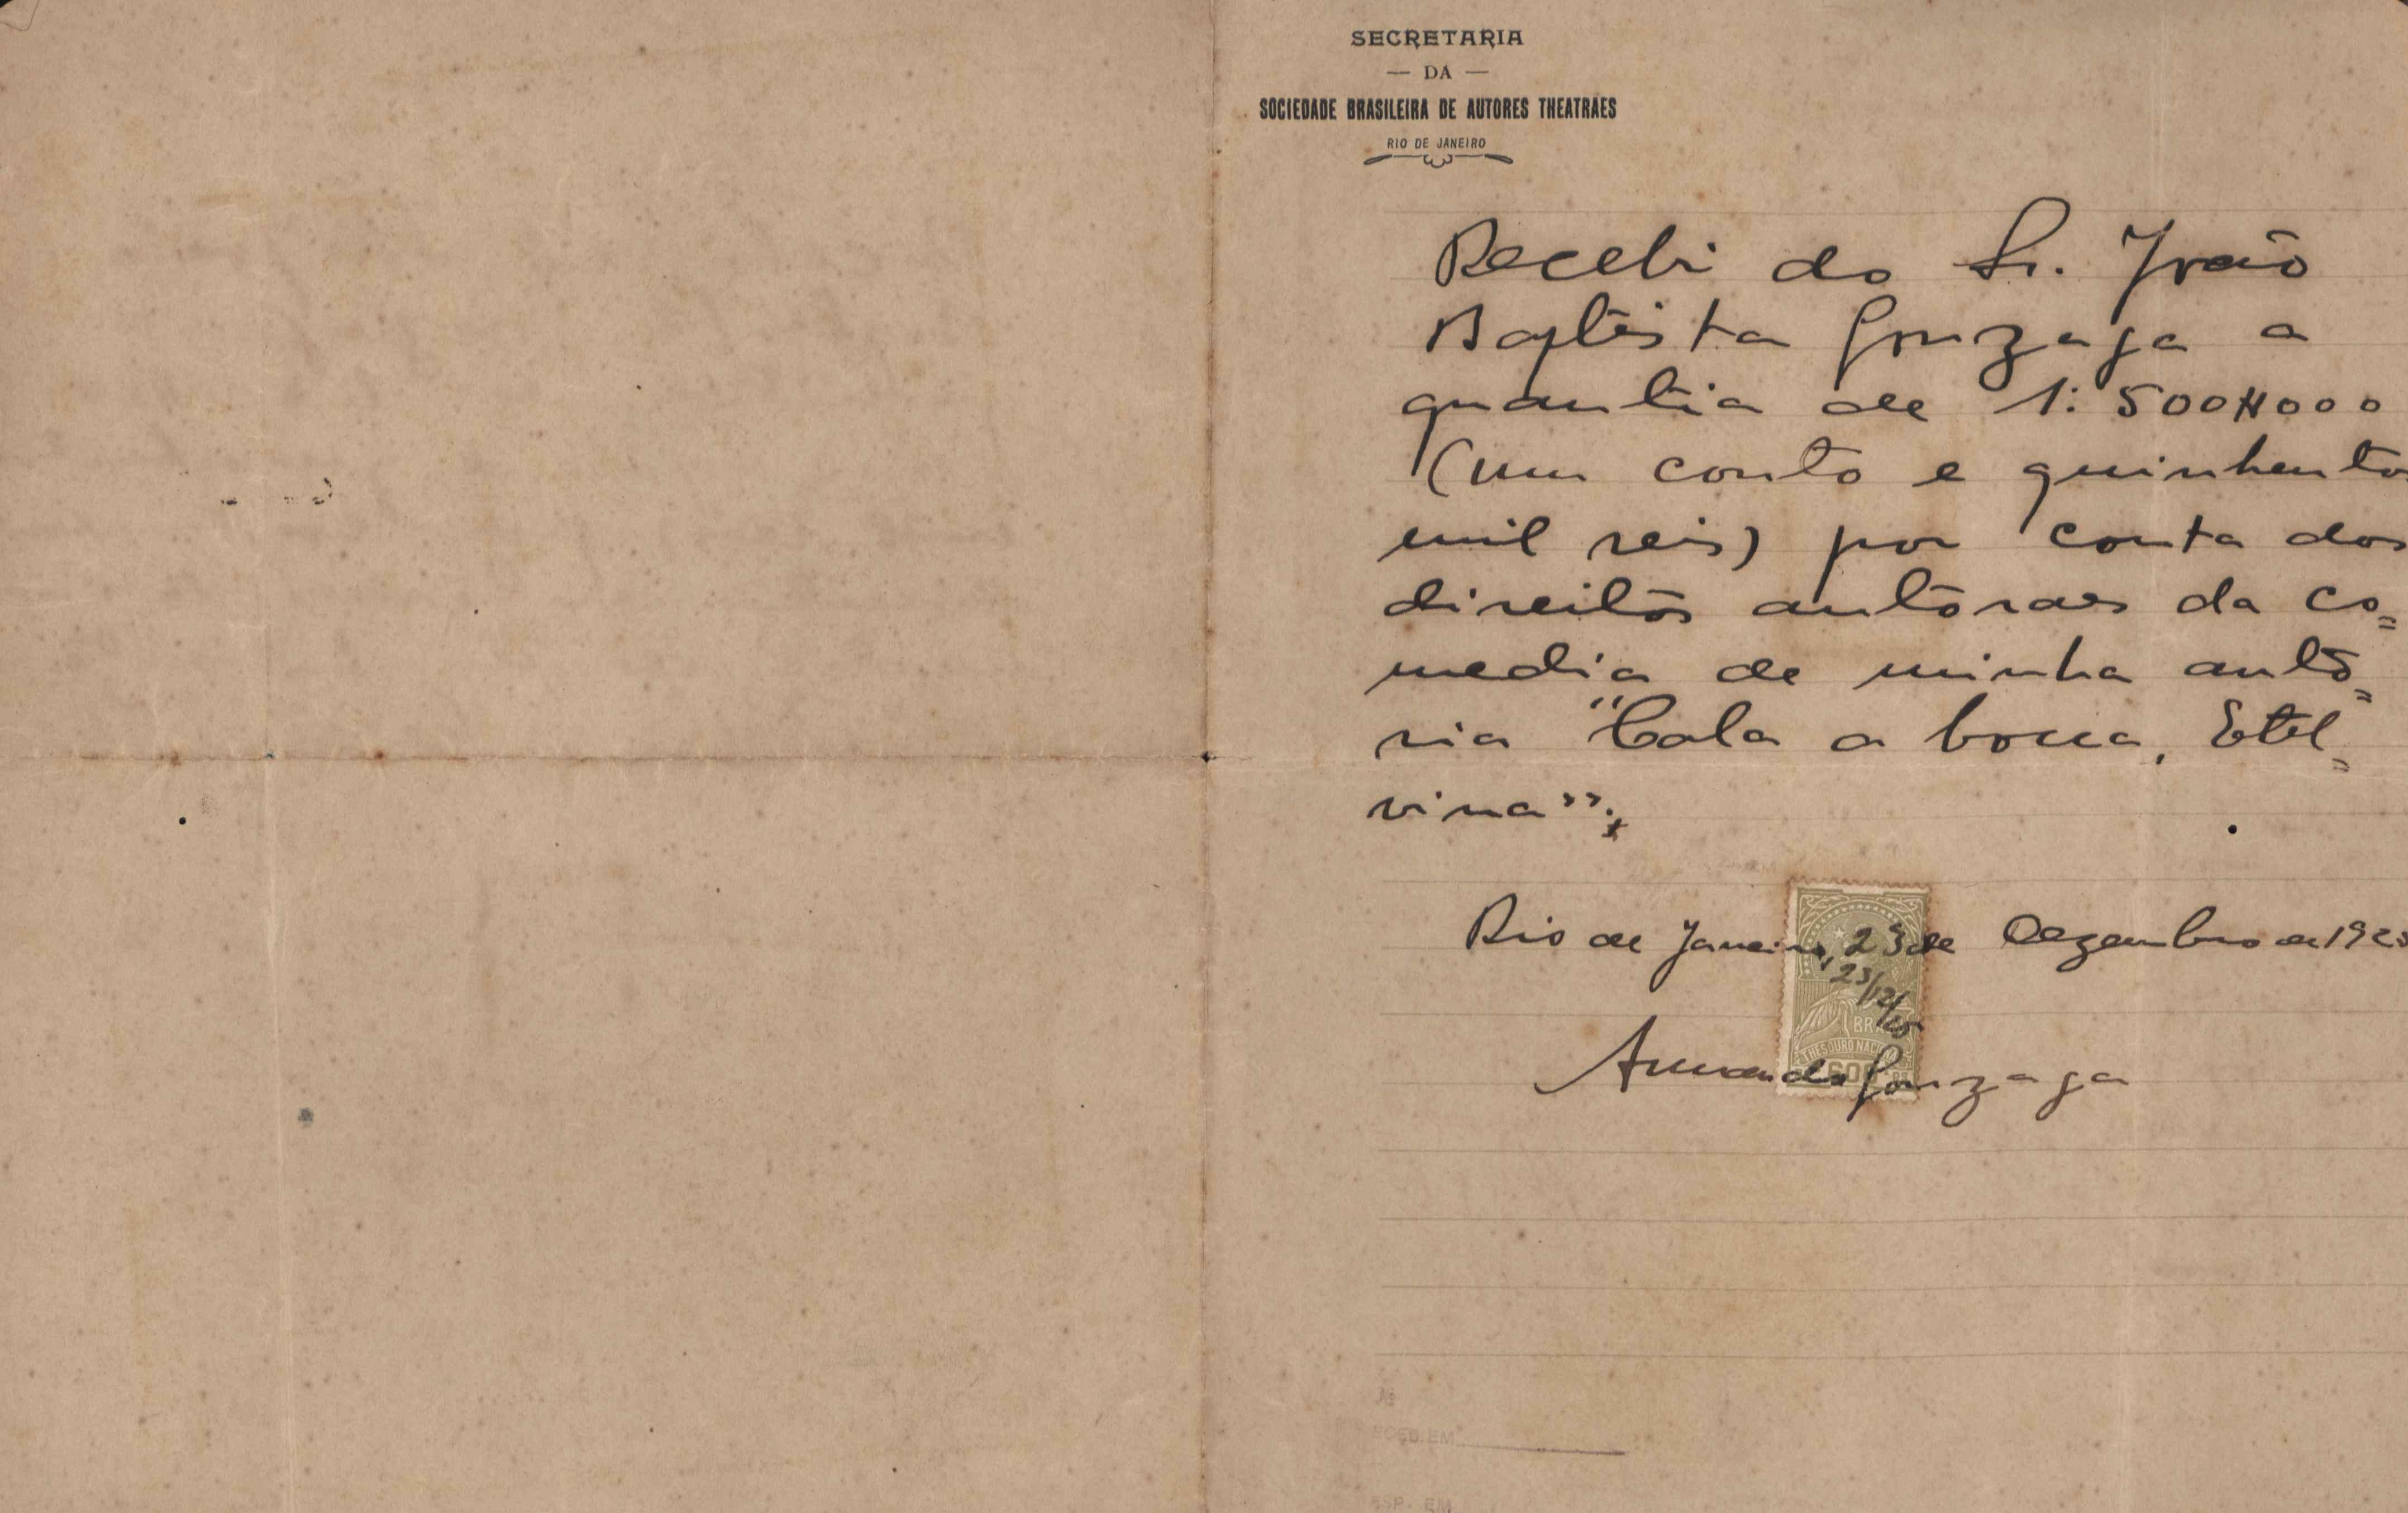 SECRETARIA
— DA —
SOCIEDADE BRASILEIRA DE AUTORES THEATRAES
RIO DE JANEIRO
Recebi do Sr. João
Baptista Gonzaga a
quantia de 1:500$000
(um conto e quinhentos
mil reis) por conta dos
direitos autoraes da co=
media de minha auto=
ria "Cala a bocca, Etel=
vina".
Rio de Janeiro, 23 de Dezembro de 1925
23/12/25
BRA
THESOURO NACI
600 RS
Armando Gonzaga
Nº
ECEB. EM
ESP. EM